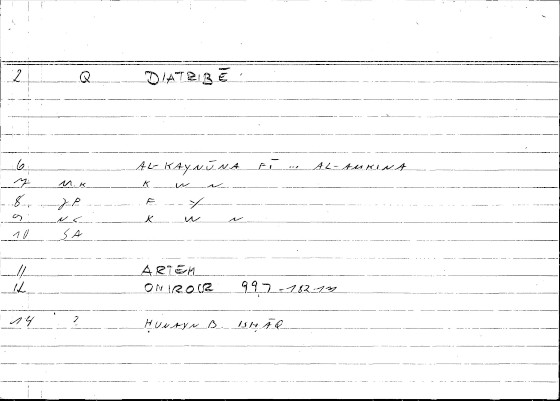 2 Q DIATRIBĒ
6 AL-KAYNŪNA FĪ ... AL-AMKINA
7 M.K K W N
8 JP F Y
9 NC K W N
10 SA
11 ARTEM
12 ONIROCR 99,7-182.
14 ? ḤUNAYN B. ISḤĀQ